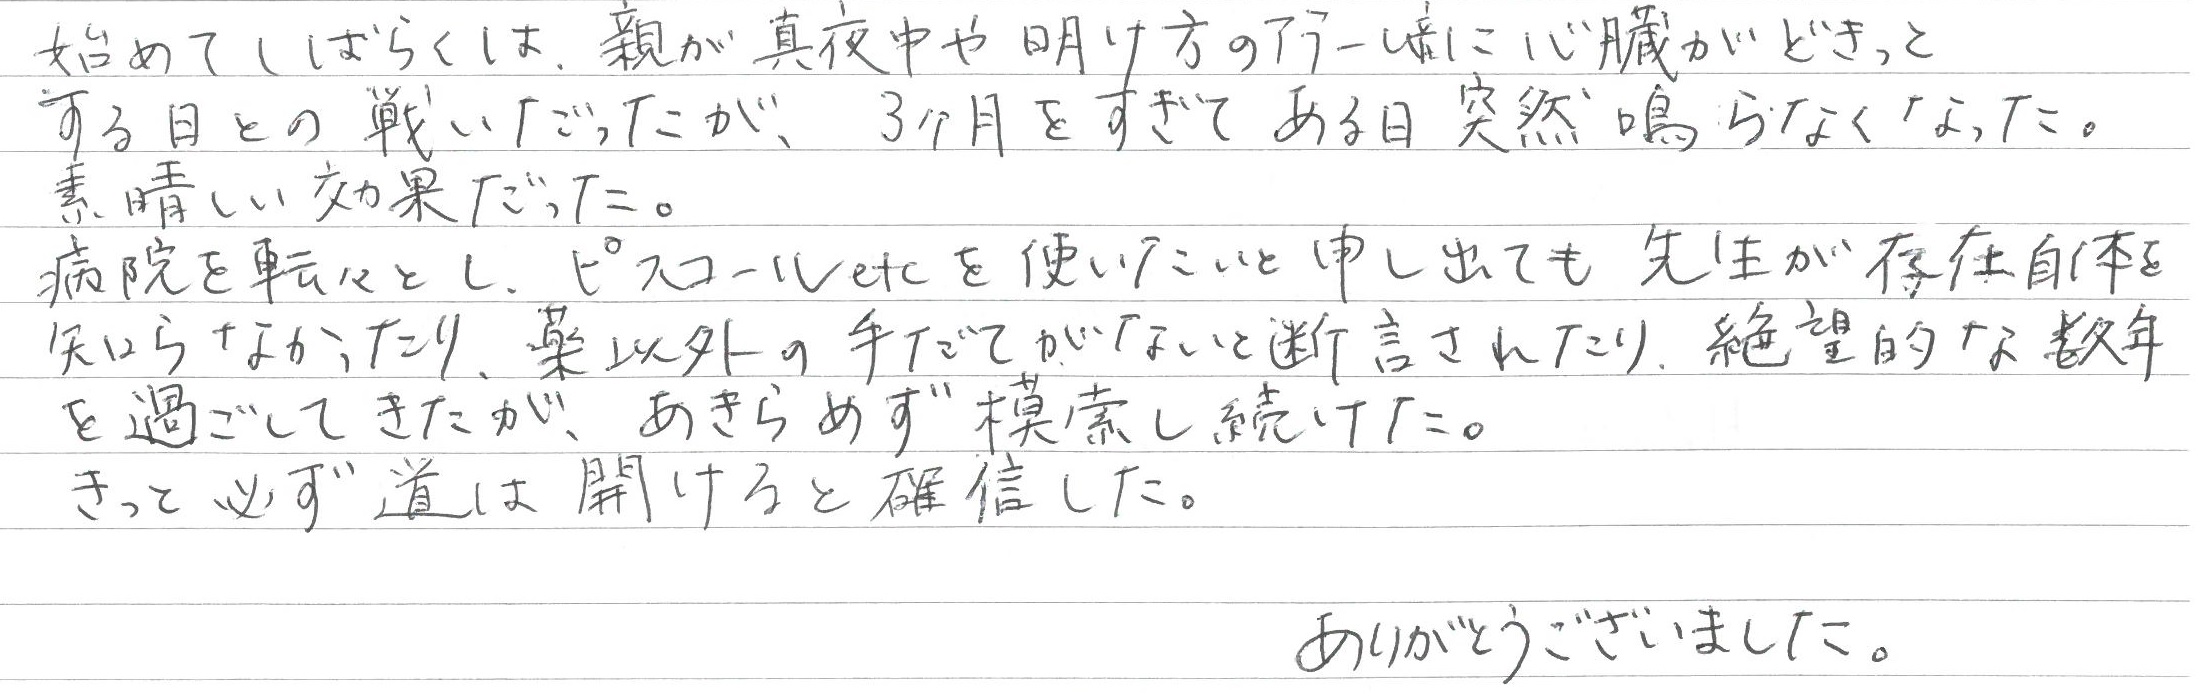 始めてしばらくは、親が真夜中や明け方のアラーム音に心臓がどきっと
する日との戦いだったが、3ケ月をすぎてある日突然鳴らなくなった。
素晴しい効果だった。
病院を転々とし、ピスコールetcを使いたいと申し出ても先生が存在自体を
知らなかったり、薬以外の手だてがないと断言されたり、絶望的な数年
を過ごしてきたが、あきらめず模索し続けた。
きっと必ず道は開けると確信した。
ありがとうございました。